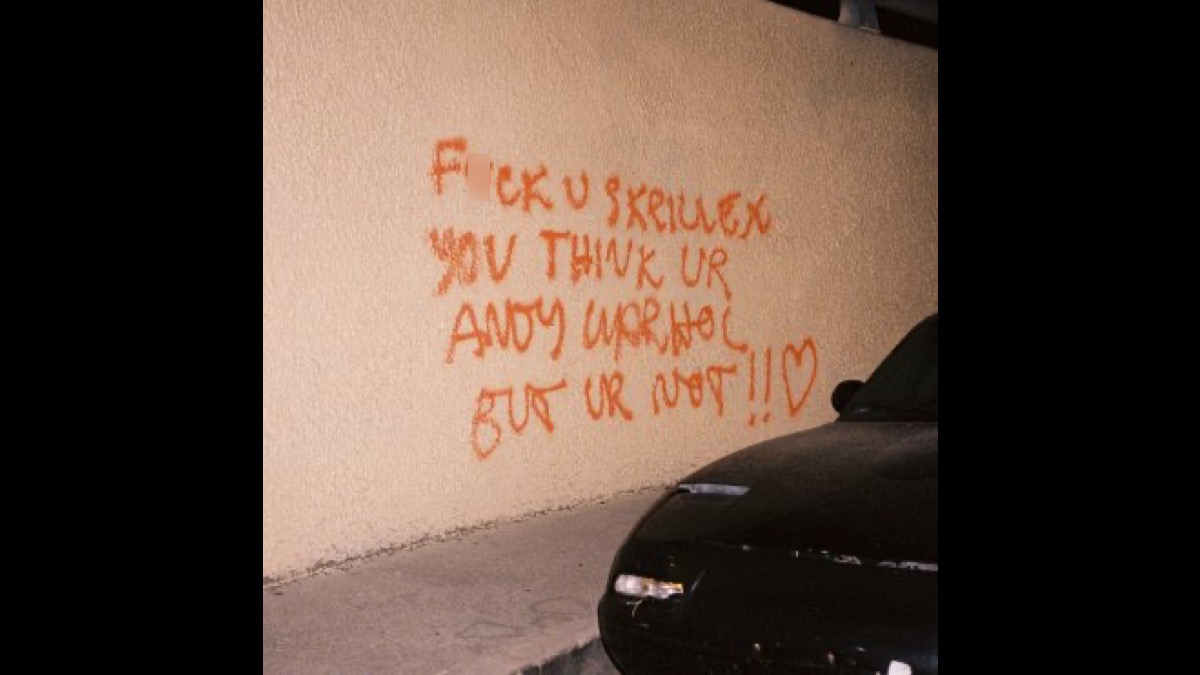 F CK U SKRILLEX
YOU THINK UR
ANDY WARHOL
BUT UR NOT!!♡